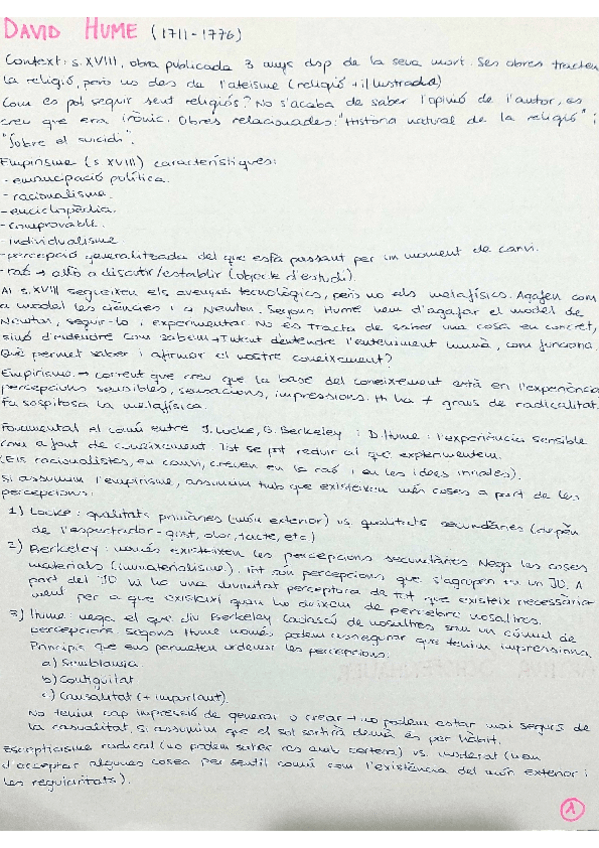 DAVID HUME (1711-1776)
Context: s. XVIII, obra publicada 3 anys dsp de la seva mort. Ses obres tracten
la religió, però no des de l'ateisme (religió + il·lustrada)
Com es pot seguir sent religiós? No s'acaba de saber l'opinió de l'autor, es
creu que era irònic. Obres relacionades: "Història natural de la religió" i
"Sobre el suicidi".
Empirisme (s XVIII) característiques:
- emancipació política.
- racionalisme.
- enciclopèdia.
- comprovable.
- individualisme
- percepció generalitzada del que està passant per un moment de canvi.
- raó → allò a discutir/establir (objecte d'estudi).
Al s. XVIII segueixen els avenços tecnològics, però no els metafísics. Agafen com
a model les ciències i a Newton. Segons Hume hem d'agafar el model de
Newton, seguir-lo i experimentar. No es tracta de saber una cosa en concret,
sinó d'entendre com sabem → Tractat d'entendre l'enteniment humà, com funciona.
Què permet saber i afirmar el nostre coneixement?
Empirisme → corrent que creu que la base del coneixement està en l'experiència
percepcions sensibles, sensacions, impressions. Hi ha ≠ graus de radicalitat.
Fa sospitosa la metafísica.
Fonamental el comú entre J. Locke, G. Berkeley i D. Hume: l'experiència sensible
com a font de coneixement. Tot se pot reduir al que experimentem.
(Els racionalistes, en canvi, creuen en la raó i en les idees innates).
Si assumim l'empirisme, assumim tmb que existeixen més coses a part de les
percepcions:
1) Locke: qualitats primàries (món exterior) vs qualitats secundàries (
de l'espectador - gist, olor, tacte, etc)
2) Berkeley: només existeixen les percepcions secundàries. Nega les coses
materials (immaterialisme). Tot són percepcions que s'agrupen en un JO. A
part del JO hi ha una divinitat perceptora de tot que existeix necessària-
ment per a que existeixi quan ho deixem de percebre nosaltres.
3) Hume nega el que diu Berkeley (cadascú de nosaltres som un cúmul de
percepcions. Segons Hume només podem assegurar que tenim impressions.
Principis que ens permeten ordenar les percepcions:
a) Semblança
b) Contigüitat
c) Causalitat (+ important).
No tenim cap impressió de generar o crear → no podem estar mai segurs de
la causalitat. Si assumim que el sol sortirà demà és per hàbit.
Escepticisme radical (no podem saber res amb certesa) vs. moderat (hem
d'acceptar algunes coses per sentit comú com l'existència del món exterior i
les regularitats).
A